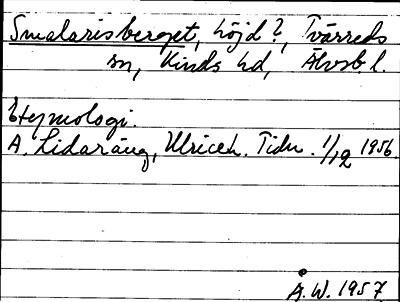 Smalarisberget, höjd?, Tvärreds
sn, Kinds hd, Älvsb. l.
Etymologi.
A. Lidaräng, Ulriceh. Tidn. 1/12 1956.
Å.W. 1957